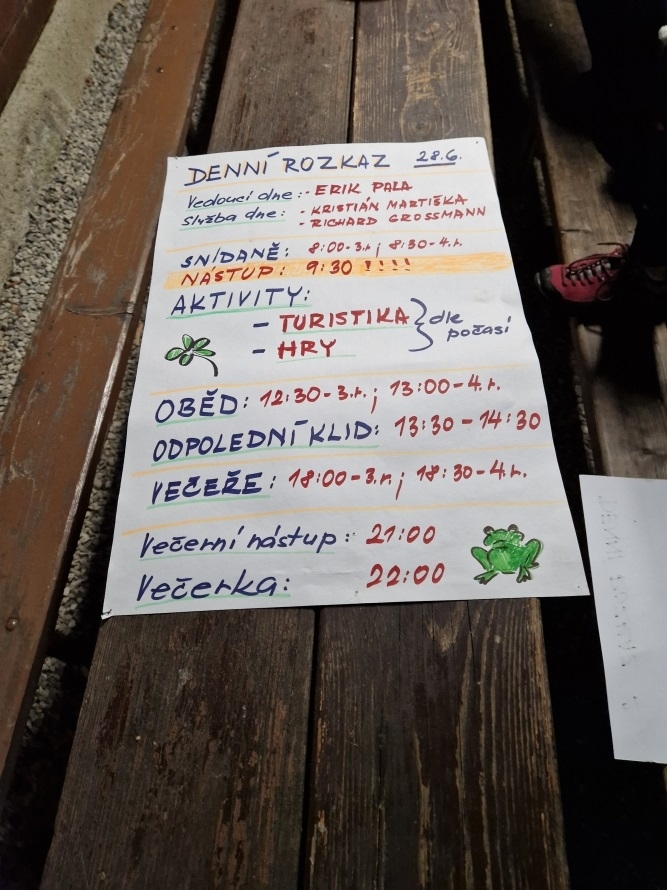 DENNÍ ROZKAZ 28.6.
Vedoucí dne: - ERIK PALA
Služba dne: - KRISTIÁN MARTIŠKA
- RICHARD GROSSMANN
SNÍDANĚ: 8:00-3.r.; 8:30-4.r.
NÁSTUP: 9:30 !!!!
AKTIVITY:
- TURISTIKA } dle
- HRY počasí
OBĚD: 12:30-3.r.; 13:00-4.r.
ODPOLEDNÍ KLID: 13:30-14:30
VEČEŘE: 18:00-3.r.; 18:30-4.r.
Večerní nástup: 21:00
Večerka: 22:00